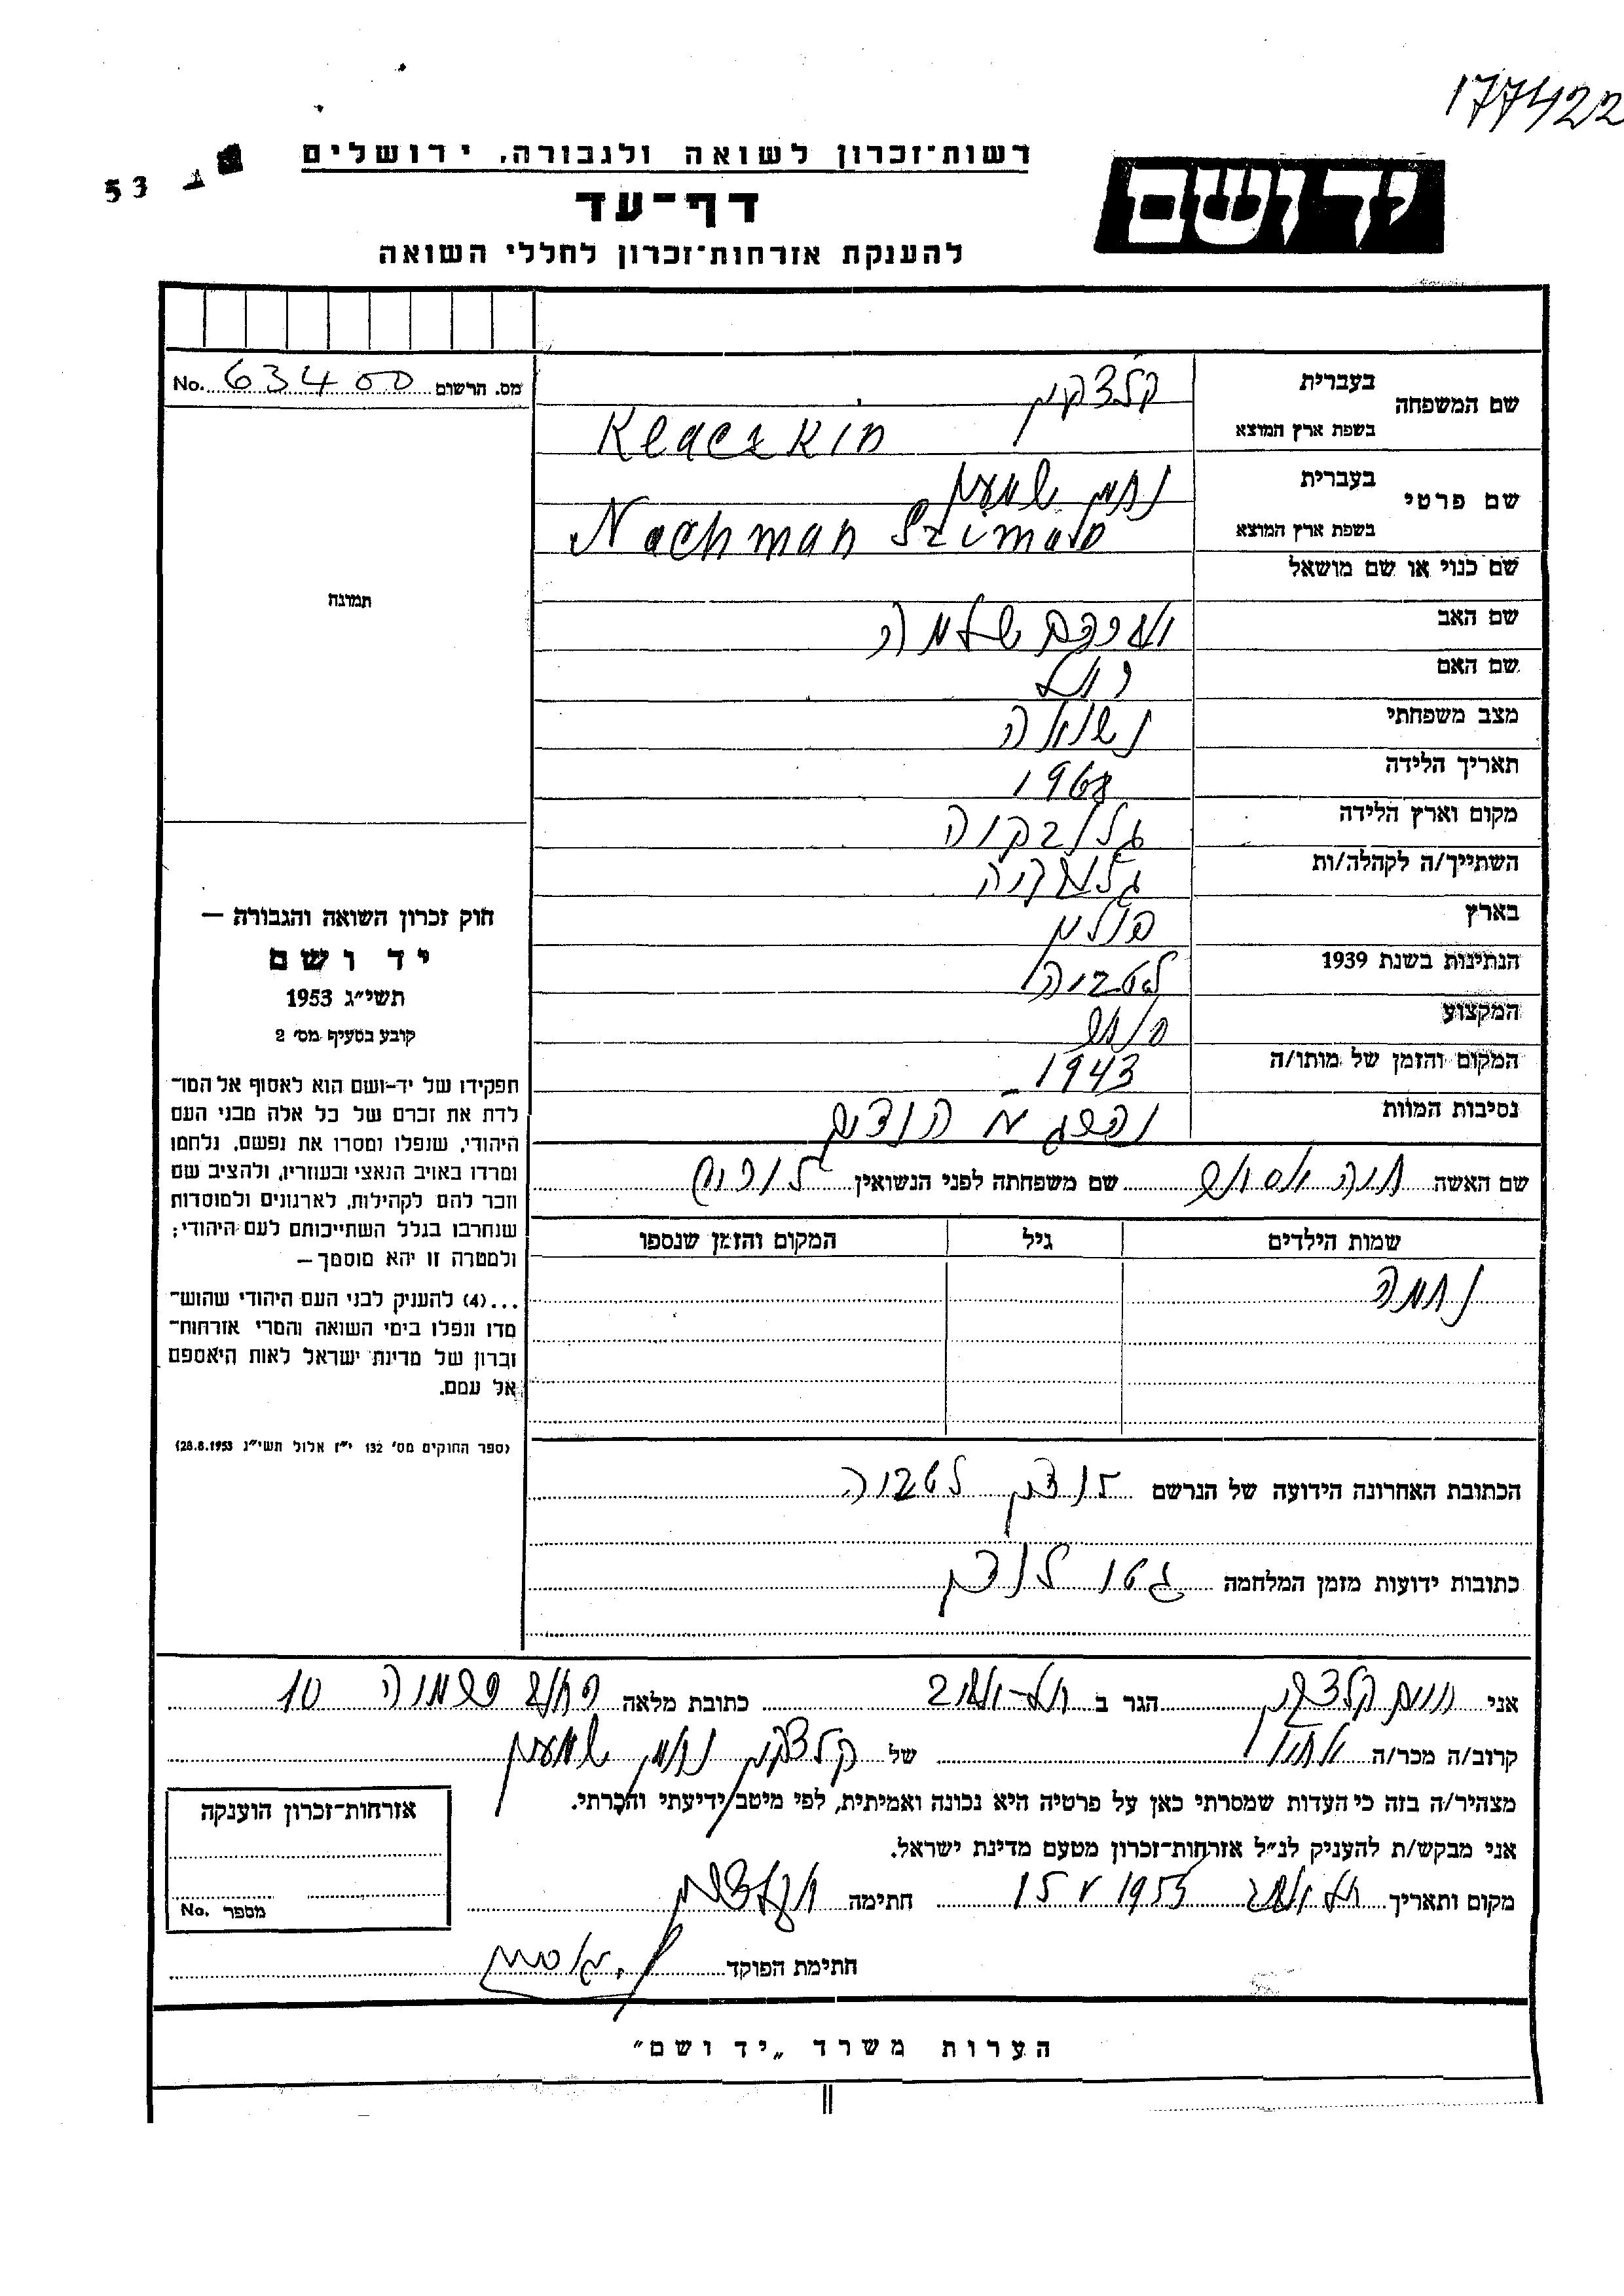 177422
רשות־זכרון לשואה ולגבורה, ירושלים
53
דף־עד
להענקת אזרחות־זכרון לחללי השואה
יד ושם
מס. הרשום 63400 No.
שם המשפחה
בעברית קלצקין
בשפת ארץ המוצא Klaczkin
שם פרטי
בעברית נחמן שמעון
בשפת ארץ המוצא Nachman Szimon
שם כנוי או שם מושאל
שם האב אברהם שלמה
שם האם
מצב משפחתי נשוי
תאריך הלידה
מקום וארץ הלידה
השתייך/ה לקהלה/ות
בארץ פולין
הנתינות בשנת 1939 לטביה
המקצוע
המקום והזמן של מותו/ה 1943
נסיבות המוות
שם האשה חנה שם משפחתה לפני הנשואין
שמות הילדים גיל המקום והזמן שנספו
נחמה
הכתובת האחרונה הידועה של הנרשם לטביה
כתובות ידועות מזמן המלחמה גטו
אני חיים קלצקין הגר ב תל-אביב כתובת מלאה 10
קרוב/ה מכר/ה של קלצקין נחמן שמעון
מצהיר/ה בזה כי העדות שמסרתי כאן על פרטיה היא נכונה ואמיתית, לפי מיטב ידיעתי והכרתי.
אני מבקש/ת להעניק לנ״ל אזרחות־זכרון מטעם מדינת ישראל.
מקום ותאריך תל אביב 15 V 1955 חתימה
חתימת הפוקד
תמונה
חוק זכרון השואה והגבורה —
יד ושם
תשי״ג 1953
קובע בסעיף מס׳ 2
תפקידו של יד-ושם הוא לאסוף אל המו־
לדת את זכרם של כל אלה מבני העם
היהודי, שנפלו ומסרו את נפשם, נלחמו
ומרדו באויב הנאצי ובעוזריו, ולהציב שם
וזכר להם לקהילות, לארגונים ולמוסדות
שנחרבו בגלל השתייכותם לעם היהודי;
ולמטרה זו יהא מוסמך —
...(4) להעניק לבני העם היהודי שהוש־
מדו ונפלו בימי השואה והמרי אזרחות־
זכרון של מדינת ישראל לאות היאספם
אל עמם.
(ספר החוקים מס׳ 132 י״ז אלול תשי״ג 28.8.1953)
אזרחות־זכרון הוענקה
מספר No.
הערות משרד „יד ושם״